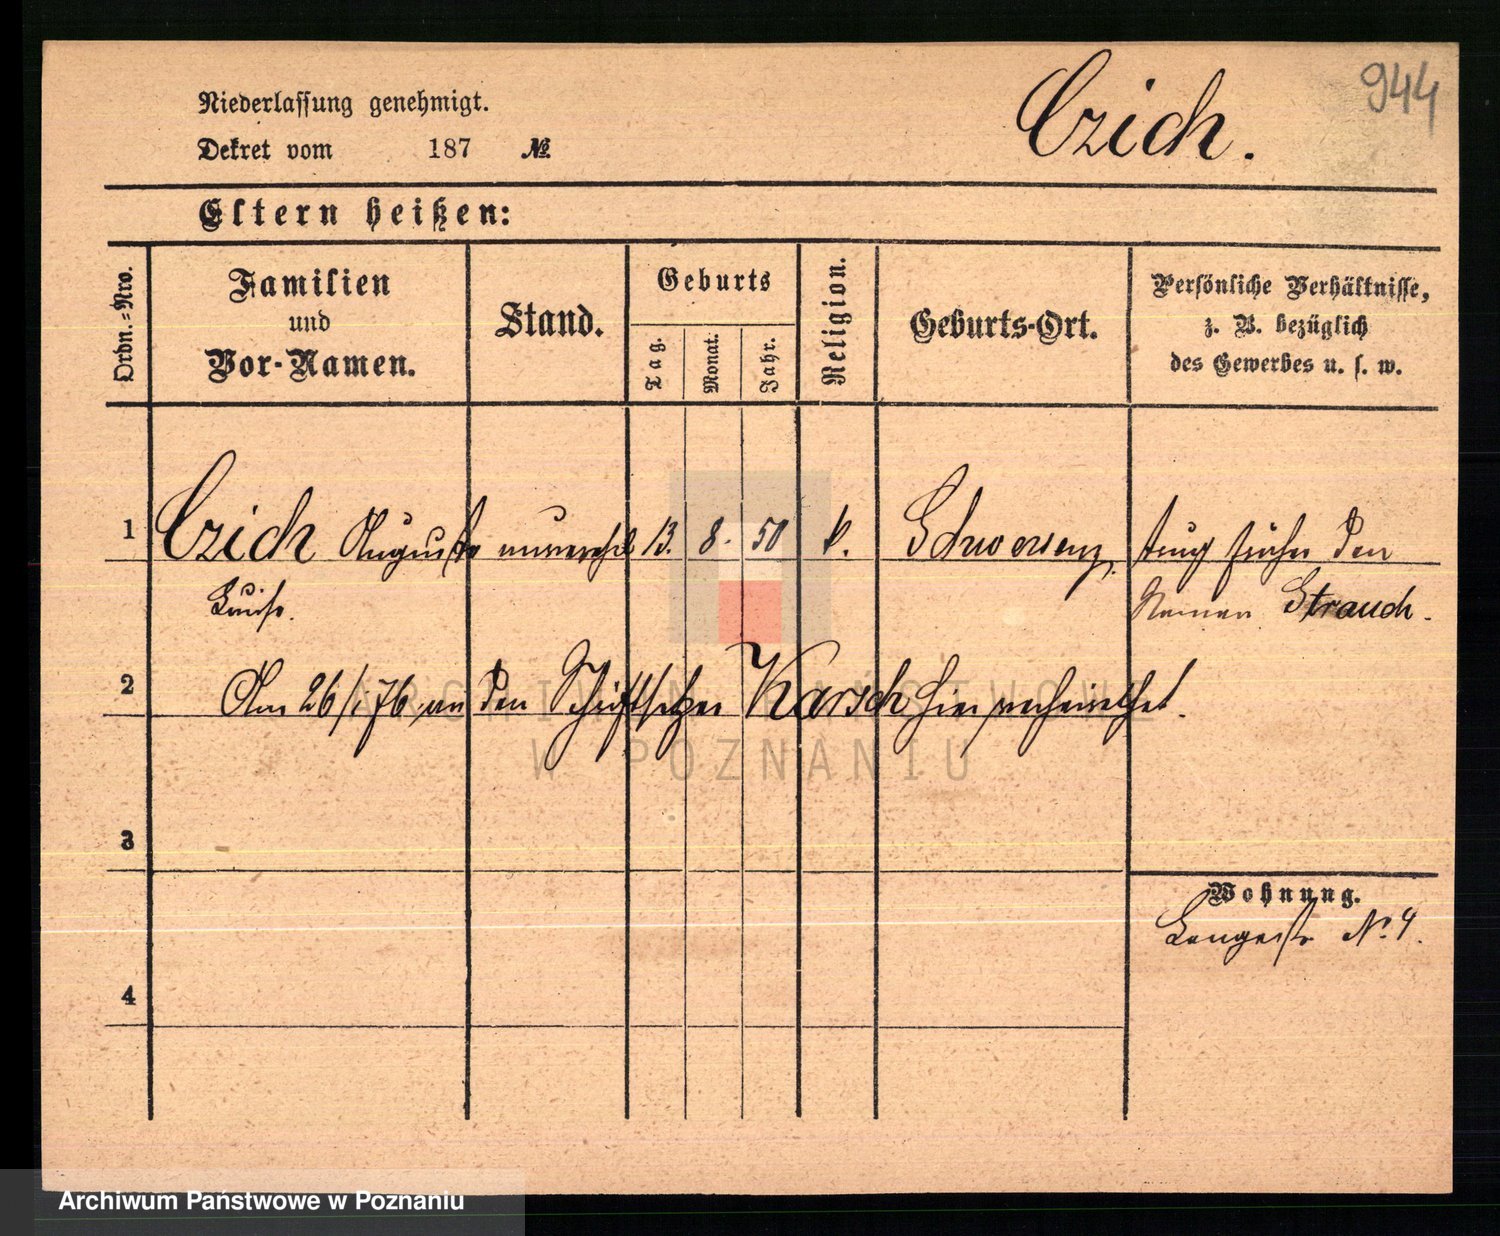 944
Czich.
Niederlassung genehmigt.
Dekret vom 187 №
Eltern heißen:
Ordn.-Nro.
Familien
und
Vor-Namen.
Stand.
Geburts
Tag.
Monat.
Jahr.
Religion.
Geburts-Ort.
Persönliche Verhältnisse,
z. B. bezüglich
des Gewerbes u. s. w.
1 Czich Auguste unverehel 13. 8. 50 k. Schwersenz, trug früher den
Luise. Namen Strauch.
2 Am 26/1 76 an den Schriftsetzer Karsch hier verheirathet.
3
Wohnung.
Langestr No 4.
4
ARCHIWUM PAŃSTWOWE
W POZNANIU
Archiwum Państwowe w Poznaniu